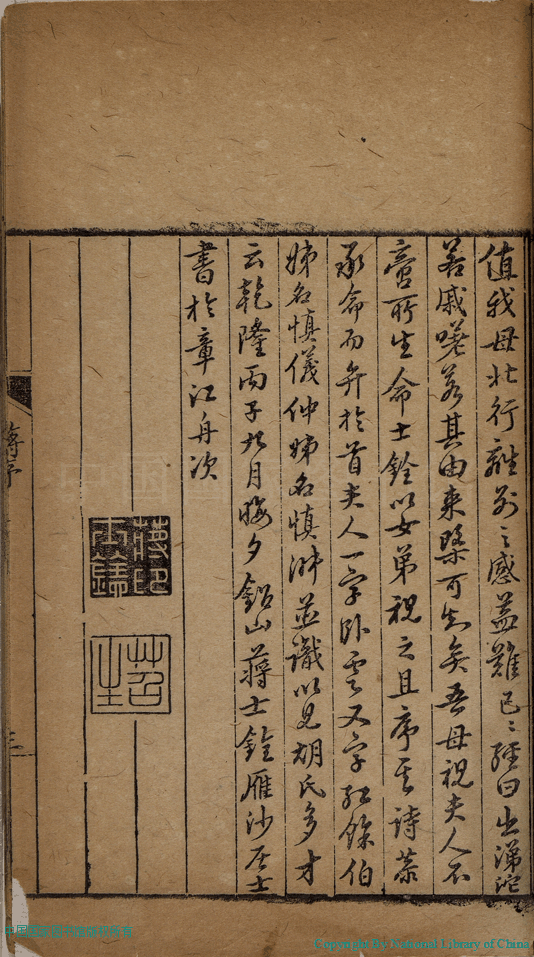 值我母北行離別之感蓋難已已經曰出涕沱
若戚嗟若其由来槩可知矣吾母視夫人不
啻所生命士銓以女弟視之且序其詩恭
承命而弁於首夫人一字卧雲又字紅餘伯
姊名慎儀仲姊名慎淑並識以見胡氏多才
云乾隆丙子九月晦夕鉛山蔣士銓雁沙居士
書於章江舟次
蔣印
士銓
苕生
序
三
中国
Copyright By National Library of China